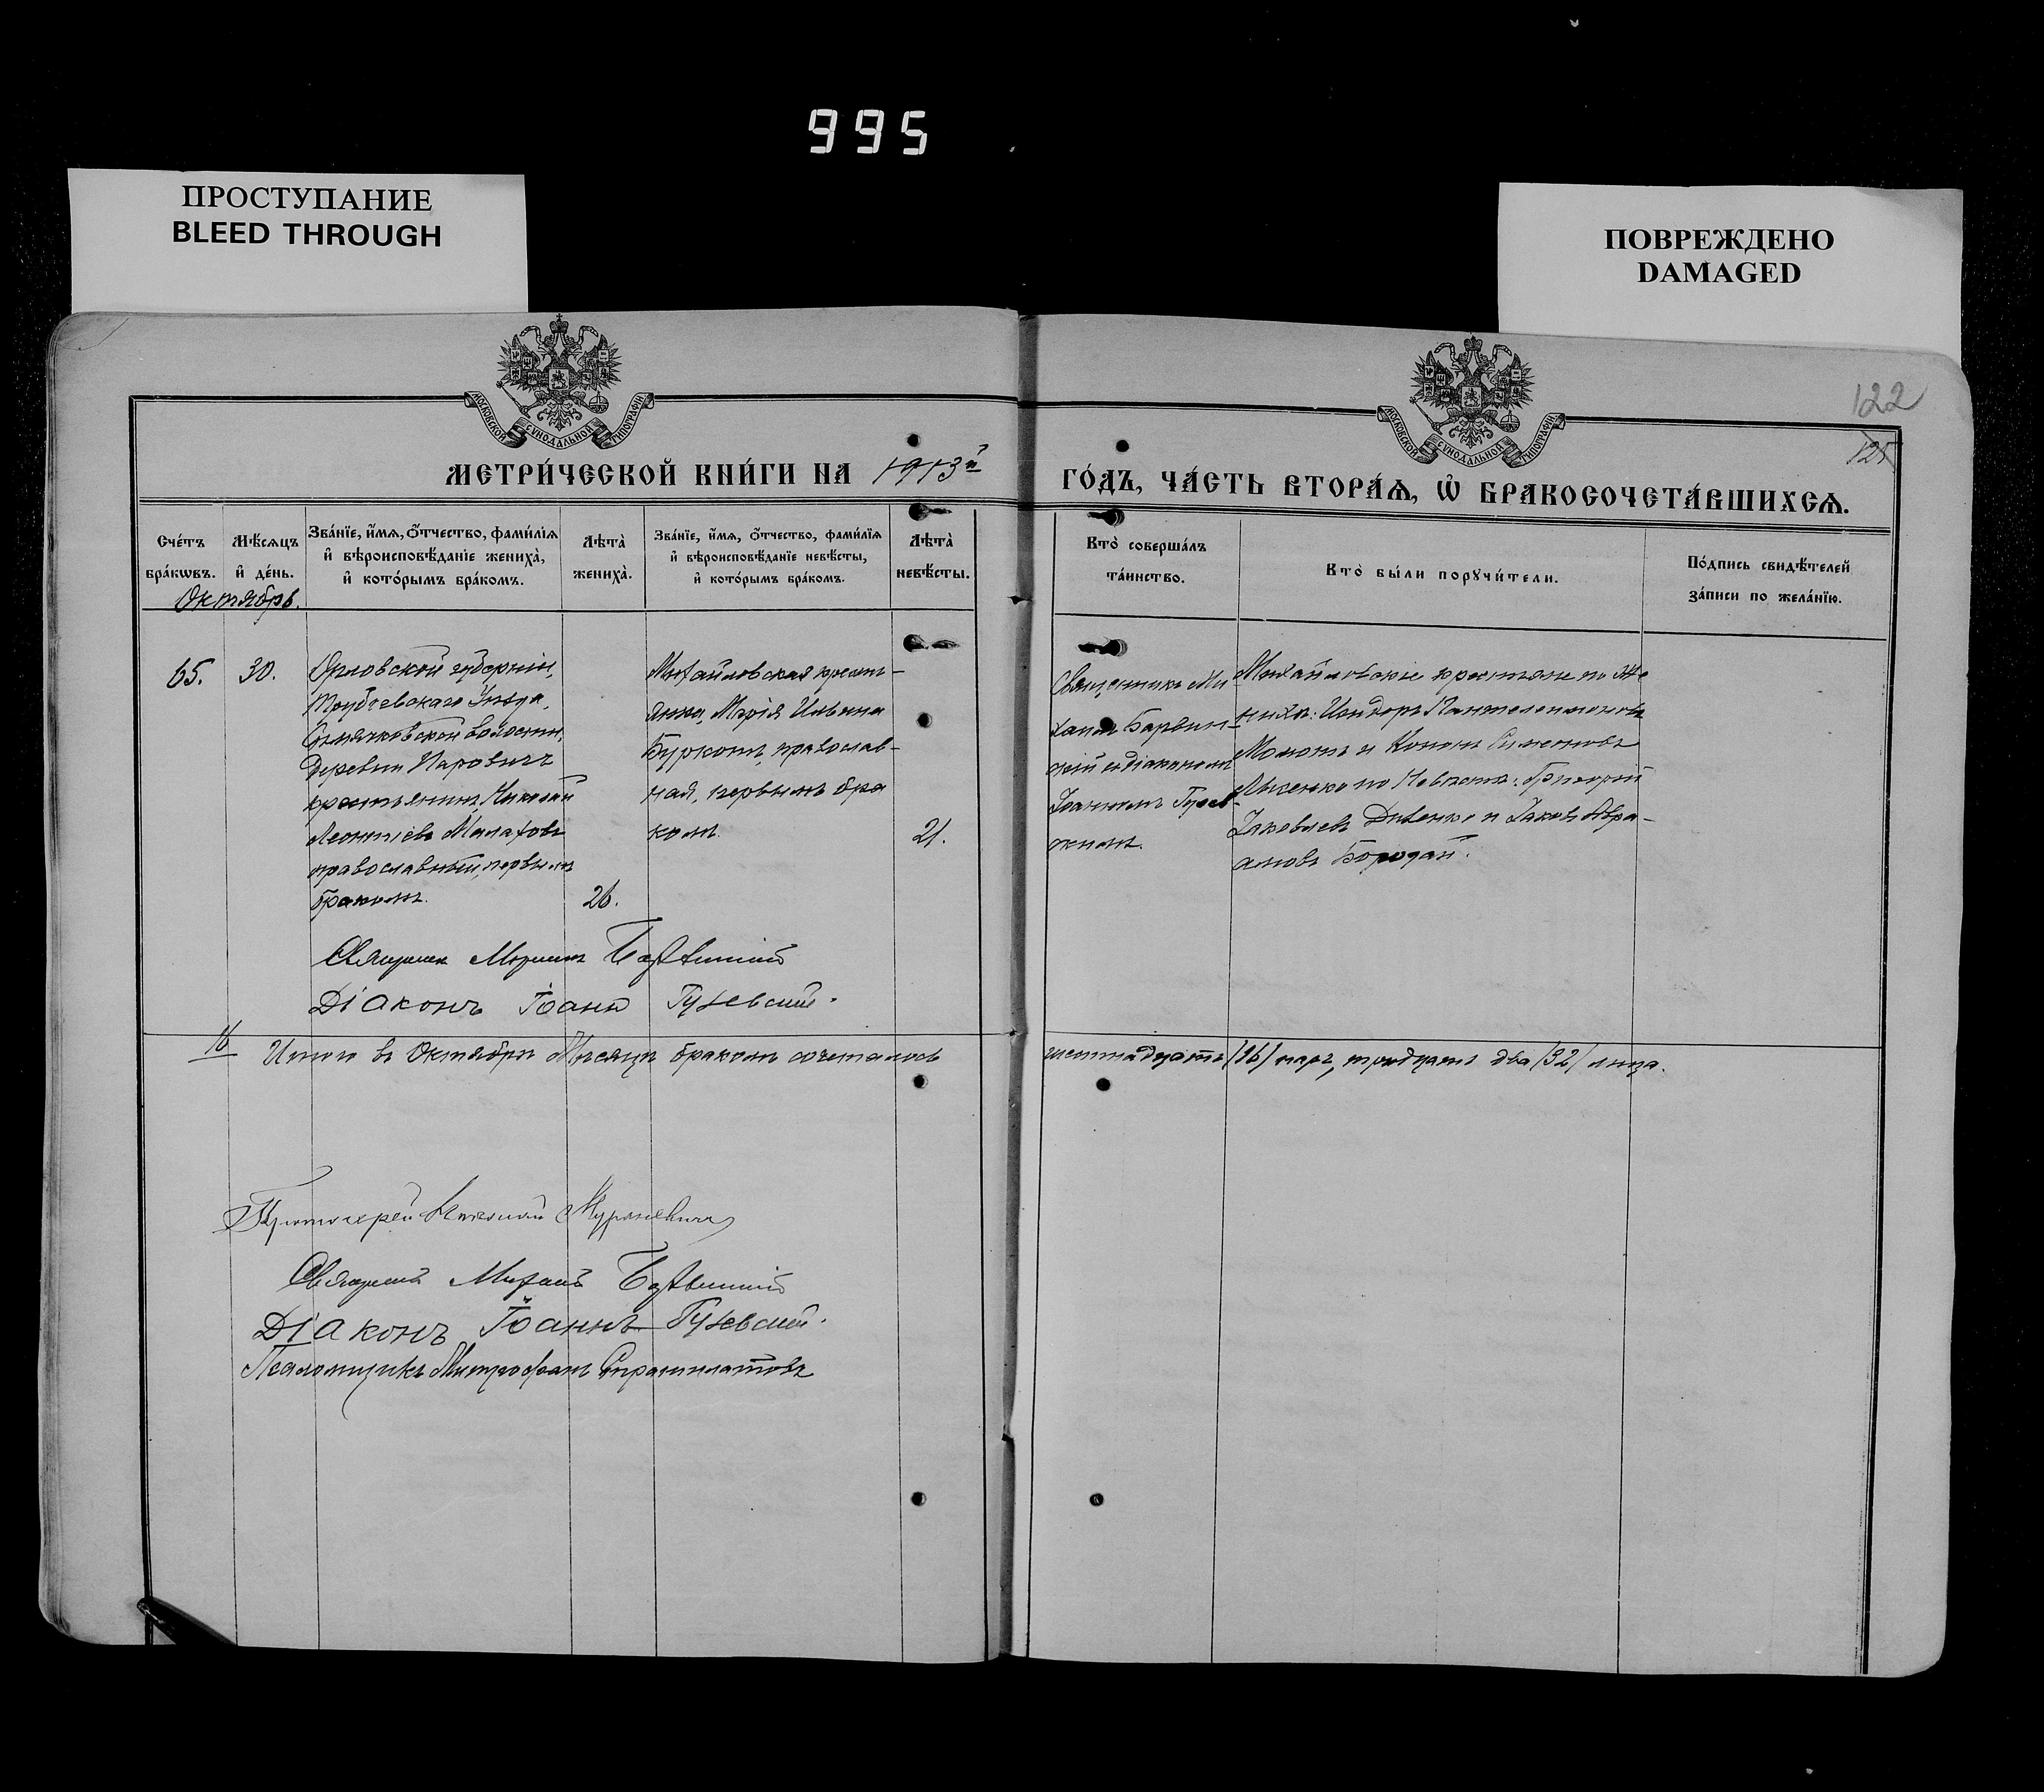 995
ПРОСТУПАНИЕ
BLEED THROUGH
ПОВРЕЖДЕНО
DAMAGED
МОСКОВСКОЙ СѴНОДАЛЬНОЙ ТИПОГРАФІИ
МОСКОВСКОЙ СѴНОДАЛЬНОЙ ТИПОГРАФІИ
122
121
МЕТРИ́ЧЕСКОЙ КНИ́ГИ НА 1913й
ГО́ДЪ, ЧА́СТЬ ВТОРА́Ѧ, Ѡ҆ БРАКОСОЧЕТА́ВШИХСѦ.
Сче́тъ
бра́кѡвъ.
Мѣ́сѧцъ
и҆ де́нь.
Зва́нїе, и҆́мѧ, ѻ҆́тчество, фами́лїѧ
и҆ вѣроисповѣ́данїе жениха̀,
и҆ кото́рымъ бра́комъ.
Лѣта̀
жениха̀.
Зва́нїе, и҆́мѧ, ѻ҆́тчество, фами́лїѧ
и҆ вѣроисповѣ́данїе невѣ́сты,
и҆ кото́рымъ бра́комъ.
Лѣта̀
невѣ́сты.
Кто̀ соверша́лъ
та́инство.
Кто̀ бы́ли порꙋчи́тели.
По́дпись свидѣ́телей
за́писи по жела́нїю.
Октябрь.
65.
30.
Орловской губерніи,
Трубчевскаго Уѣзда,
волости,
Деревни
крестьянинъ Николай
Леонтіевъ Малаховъ
православный, первымъ
бракомъ.
26.
Михайловская кресть-
янка, Марія Ильина
Буркотъ, православ-
ная, первымъ бра
комъ.
21.
Священникъ Ми-
хаилъ Барвин-
скій съ діакономъ
Іоанномъ Гусев-
скимъ.
Михайловскіе крестьяне по Же
ниху: Исидоръ Пантелеимоновъ
и Кононъ Симеоновъ
Лысенко по Невѣстѣ: Григорій
Іаковлевъ и Іаковъ Авра-
амовъ Бородай.
Священникъ Михаилъ Барвинскій
Діаконъ Іоаннъ Гусевскій.
16
Итого въ Октябрѣ Мѣсяцѣ бракомъ сочеталось
шестнадцать /16/ паръ, тридцать два /32/ лица.
Протоіерей Николай
Священникъ Михаилъ Барвинскій
Діаконъ Іоаннъ Гусевскій.
Псаломщикъ Митрофанъ